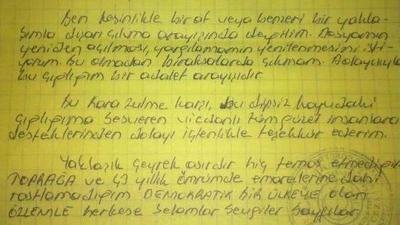 Ben kesinlikle bir af veya benzeri bir yakla-
şımla dışarı çıkma arayışında değilim. Dosyamın
yeniden açılması, yargılamamın yenilenmesini isti-
yorum. Bu olmadan bırakılsalarda çıkmam. Dolayısıyla
bu çığlığım bir adalet arayışıdır.
Bu kara zulme karşı, bu dipsiz kuyudaki
çığlığıma ses veren vicdanlı tüm güzel insanlara
desteklerinden dolayı içtenlikle teşekkür ederim.
Yaklaşık çeyrek asırdır hiç temas etmediğim
TOPRAĞA ve 43 yıllık ömrümde emarelerine dahi
rastlamadığım DEMOKRATİK BİR ÜLKEYE olan
ÖZLEMLE herkese selamlar sevgiler saygılar